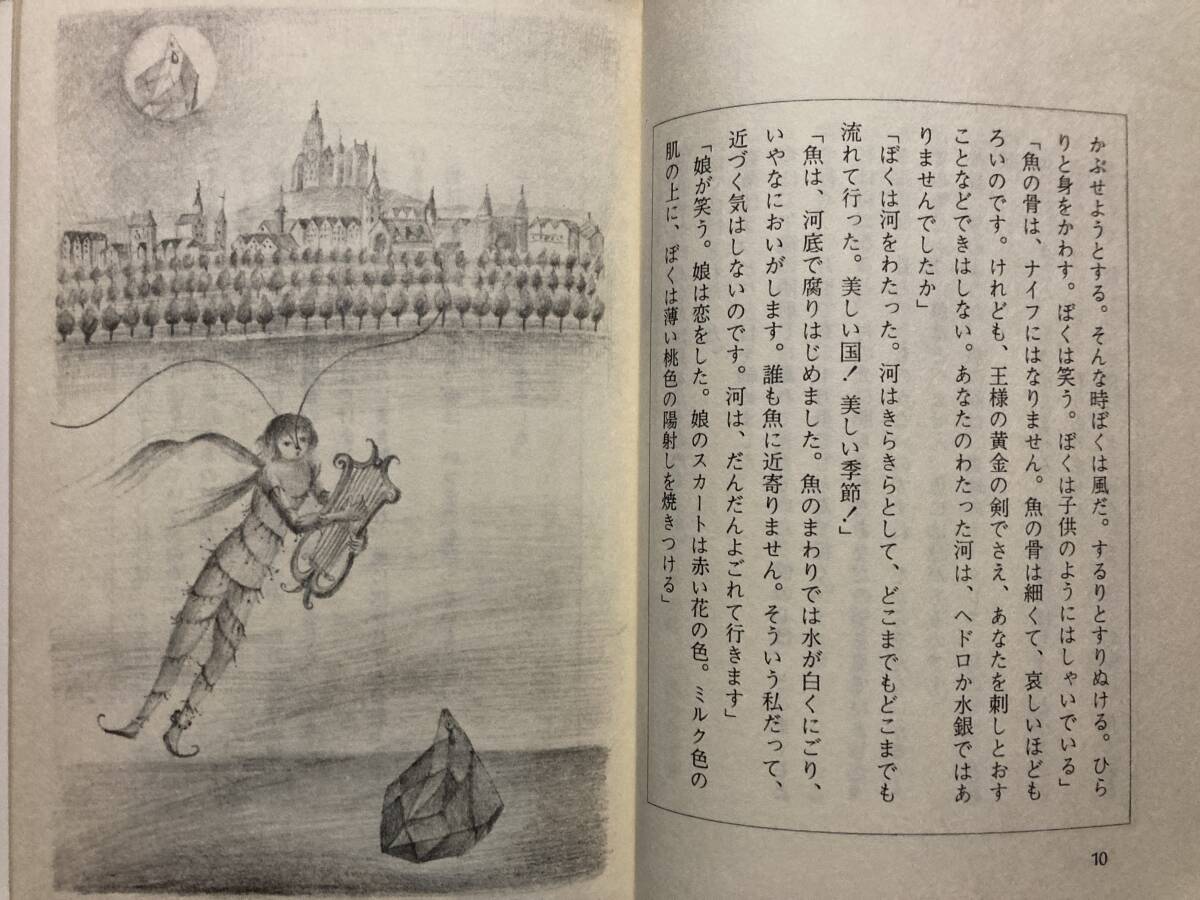 かぶせようとする。そんな時ぼくは風だ。するりとすりぬける。ひら
りと身をかわす。ぼくは笑う。ぼくは子供のようにはしゃいでいる」
「魚の骨は、ナイフにはなりません。魚の骨は細くて、哀しいほども
ろいのです。けれども、王様の黄金の剣でさえ、あなたを刺しとおす
ことなどできはしない。あなたのわたった河は、ヘドロか水銀ではあ
りませんでしたか」
「ぼくは河をわたった。河はきらきらとして、どこまでもどこまでも
流れて行った。美しい国！美しい季節！」
「魚は、河底で腐りはじめました。魚のまわりでは水が白くにごり、
いやなにおいがします。誰も魚に近寄りません。そういう私だって、
近づく気はしないのです。河は、だんだんよごれて行きます」
「娘が笑う。娘は恋をした。娘のスカートは赤い花の色。ミルク色の
肌の上に、ぼくは薄い桃色の陽射しを焼きつける」
10